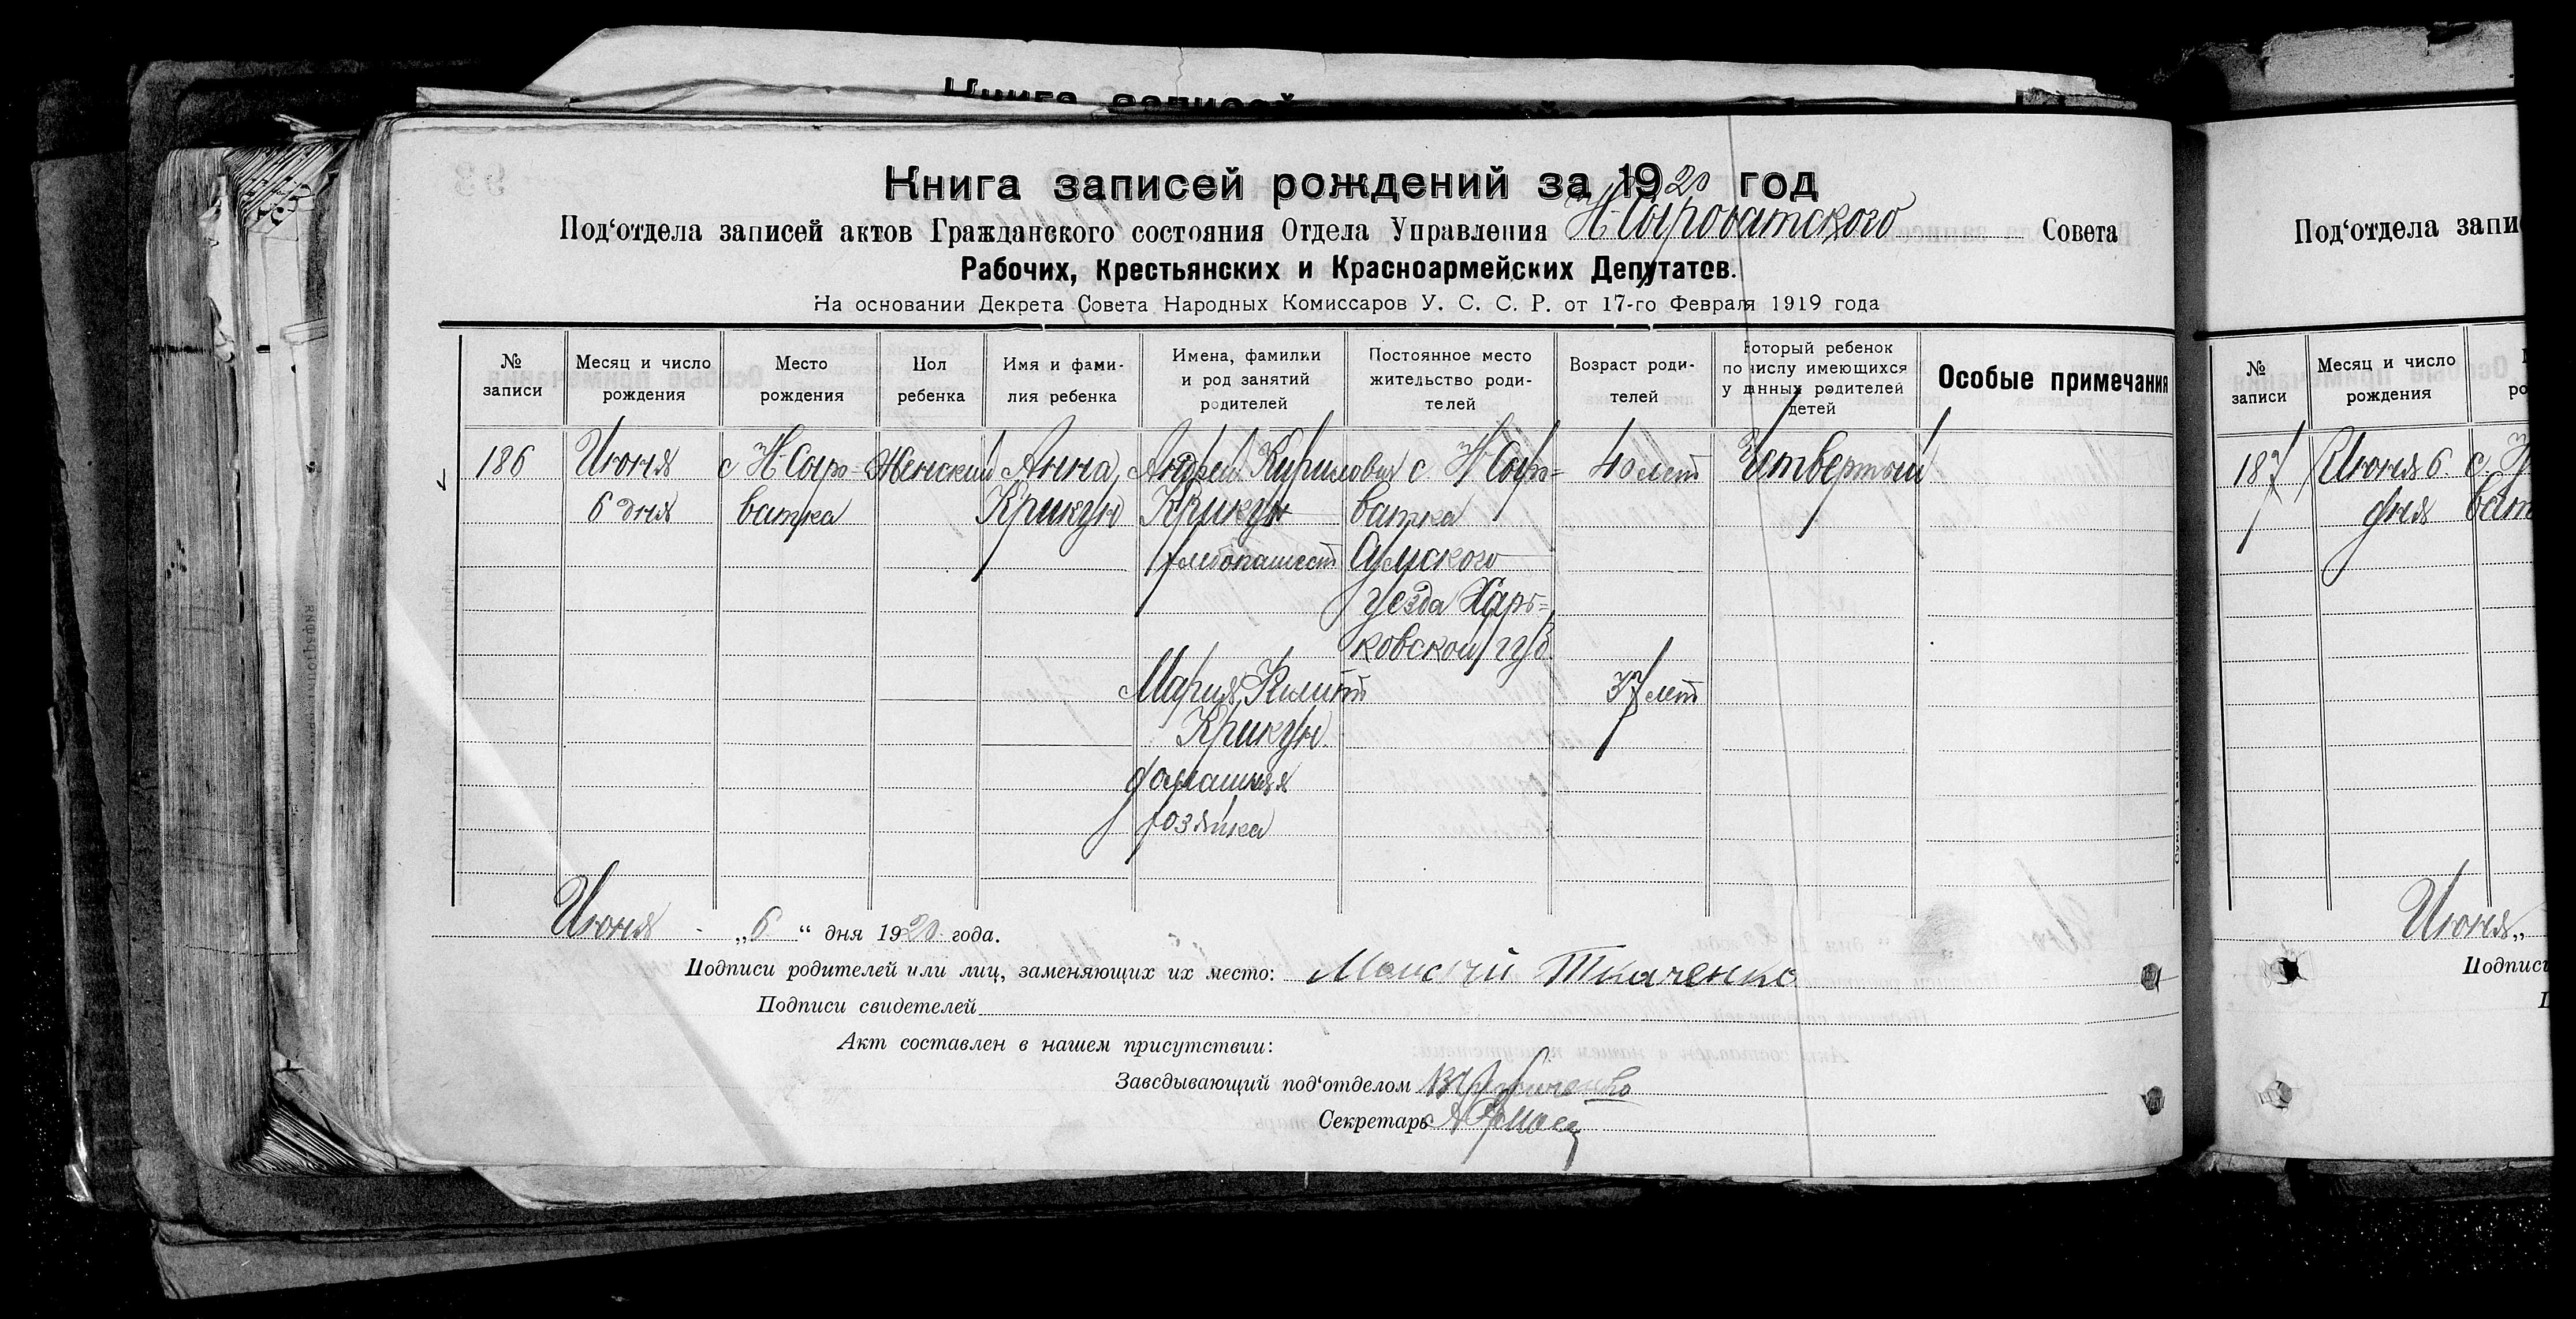 Книга записей
Книга записей рождений за 1920 год
Под‘отдела записей актов Гражданского состояния Отдела Управления Н-Сыроватского Совета
Рабочих, Крестьянских и Красноармейских Депутатов.
На основании Декрета Совета Народных Комиссаров У. С. С. Р. от 17-го Февраля 1919 года
№ записи
Месяц и число рождения
Место рождения
Пол ребенка
Имя и фами-
лия ребенка
Имена, фамилии
и род занятий
родителей
Постоянное место
жительство роди-
телей
Возраст роди-
телей
Который ребенок
по числу имеющихся
у данных родителей
детей
Особые примечания
186
Июня
6 дня
с Н Сыро-
ватка
Женский
Анна
Крикун
Андрей Кирилович
Крикун
хлебопашест
Мария Филип
Крикун
домашняя
хозяйка
с Н Сыро-
ватка
Сумского
уезда Харь-
ковской губ
40 лет
37 лет
Четвертый
Июня „6“ дня 1920 года.
Подписи родителей или лиц, заменяющих их место: Моисей Ткаченко
Подписи свидетелей
Акт составлен в нашем присутствии:
Заведывающий под‘отделом
Секретарь
Под‘отдела запи
№ записи
Месяц и число рождения
187
Июня 6
дня
с. Н
ват
Июня „
Подписи